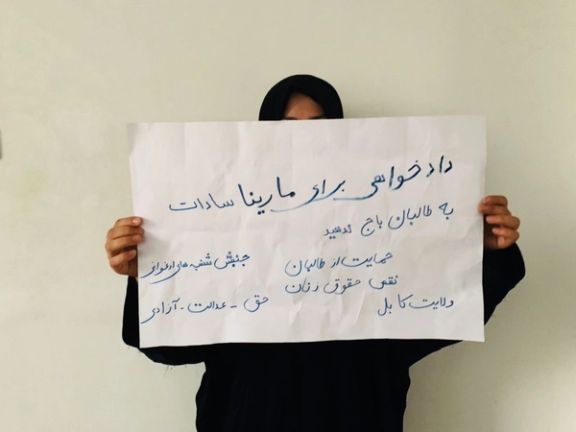 دادخواهی برای مارینا سادات
به طالبان باج ندهید
حمایت از طالبان
نقض حقوق زنان
ولایت کابل
جنبش شنبه های ارغوانی
حق - عدالت - آزادی